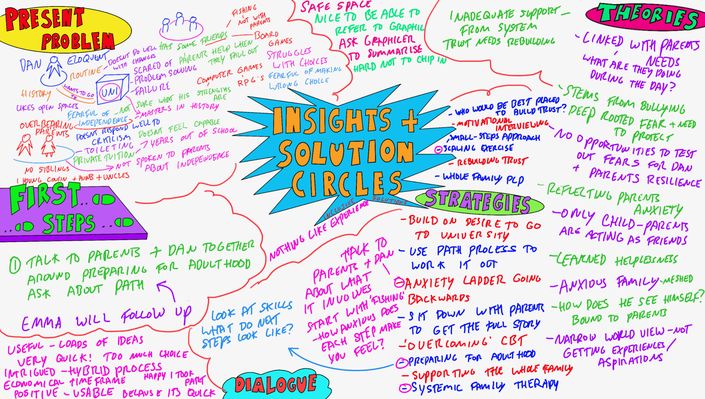 PRESENT PROBLEM
DAN
ELOQUENT
ROUTINE
DOESN'T DO WELL WITH CHANGE
HAS SOME FRIENDS
FISHING NOT WITH PARENTS
SCARED OF PARENTS HELP WHEN
PROBLEM SOLVING THEY FALL OUT
BOARD GAMES
COMPUTER GAMES
RPG'S
STRUGGLES WITH CHOICES
FEARFUL OF MAKING WRONG CHOICE
HISTORY
WANTS TO GO
UNI
LIKES OPEN SPACES
FEARFUL OF INDEPENDENCE
NOT SURE WHAT HIS STRENGTHS ARE
MASTERS IN HISTORY
OVERBEARING PARENTS
DOESN'T RESPOND WELL TO CRITICISM
TOILETING
DOESN'T FEEL CAPABLE
PRIVATE TUITION
7 YEARS OUT OF SCHOOL
NO SIBLINGS
NOT SPOKEN TO PARENTS
ABOUT INDEPENDENCE
1 YOUNG COUSIN + AUNTS + UNCLES
SAFE SPACE
NICE TO BE ABLE TO
REFER TO GRAPHIC
ASK GRAPHICER
TO SUMMARISE
HARD NOT TO CHIP IN
INSIGHTS +
SOLUTION
CIRCLES
INCLUSIVE SOLUTIONS
INADEQUATE SUPPORT
FROM SYSTEM
TRUST NEEDS REBUILDING
THEORIES
- LINKED WITH PARENTS NEEDS
WHAT ARE THEY DOING
DURING THE DAY?
- STEMS FROM BULLYING
DEEP ROOTED FEAR + NEED
TO PROTECT
- NO OPPORTUNITIES TO TEST
OUT FEARS FOR DAN
+ PARENTS RESILIENCE
- REFLECTING PARENTS
ANXIETY
- ONLY CHILD - PARENTS
ARE ACTING AS FRIENDS
- LEARNED HELPLESSNESS
- ANXIOUS FAMILY - MESHED
- HOW DOES HE SEE HIMSELF?
BOUND TO PARENTS
- NARROW WORLD VIEW - NOT
GETTING EXPERIENCES/
ASPIRATIONS
- WHO WOULD BE BEST PLACED
TO BUILD TRUST?
- MOTIVATIONAL
INTERVIEWING
- SMALL-STEPS APPROACH
- SCALING EXERCISE
- REBUILDING TRUST
- WHOLE FAMILY PCP
STRATEGIES
- BUILD ON DESIRE TO GO
TO UNIVERSITY
- USE PATH PROCESS TO
WORK IT OUT
- ANXIETY LADDER GOING
BACKWARDS
- SIT DOWN WITH PARENTS
TO GET THE FULL STORY
- 'OVERCOMING' CBT
- PREPARING FOR ADULTHOOD
- SUPPORTING THE WHOLE FAMILY
- SYSTEMIC FAMILY THERAPY
FIRST STEPS
1 TALK TO PARENTS + DAN TOGETHER
AROUND PREPARING FOR ADULTHOOD
ASK ABOUT PATH
EMMA WILL FOLLOW UP
NOTHING LIKE EXPERIENCE
TALK TO
PARENTS + DAN
ABOUT WHAT
IT INVOLVES
START WITH 'FISHING'
- HOW ANXIOUS DOES
EACH STEP MAKE
YOU FEEL?
LOOK AT SKILLS
WHAT DO NEXT
STEPS LOOK LIKE?
DIALOGUE
USEFUL - LOADS OF IDEAS
VERY QUICK! TOO MUCH CHOICE
INTRIGUED - HYBRID PROCESS
ECONOMICAL TIMEFRAME
HAPPY I TOOK PART
POSITIVE - USABLE
IT'S QUICK